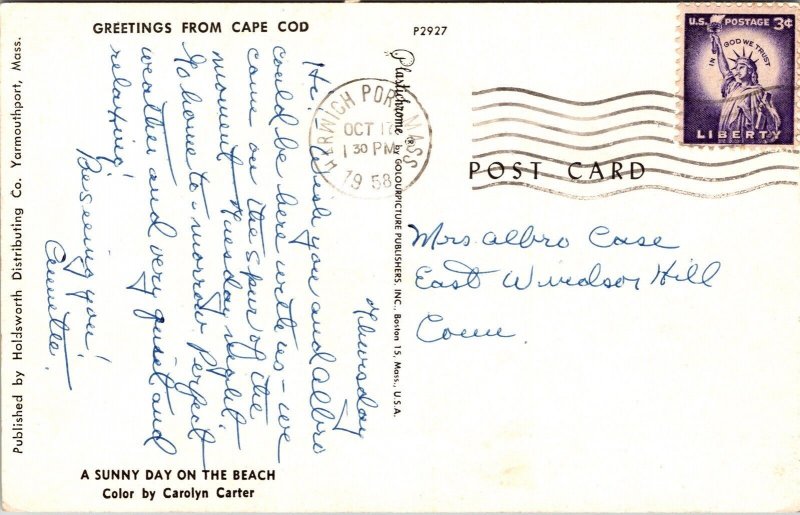 GREETINGS FROM CAPE COD
P2927
U.S. POSTAGE 3¢
IN GOD WE TRUST
LIBERTY
HARWICH PORT, MASS
OCT 17
1 30 PM
1958
POST CARD
Published by Holdsworth Distributing Co. Yarmouthport, Mass.
Plastichrome ® by COLOURPICTURE PUBLISHERS, INC., Boston 15, Mass., U.S.A.
Thursday
Hi! Wish you and Albro
could be here with us - we
came on the spur of the
moment Tuesday night.
Go home to-morrow. Perfect
weather and very quiet and
relaxing!
Be seeing you!
Annette.
Mrs. Albro Case
East Windsor Hill
Conn.
A SUNNY DAY ON THE BEACH
Color by Carolyn Carter